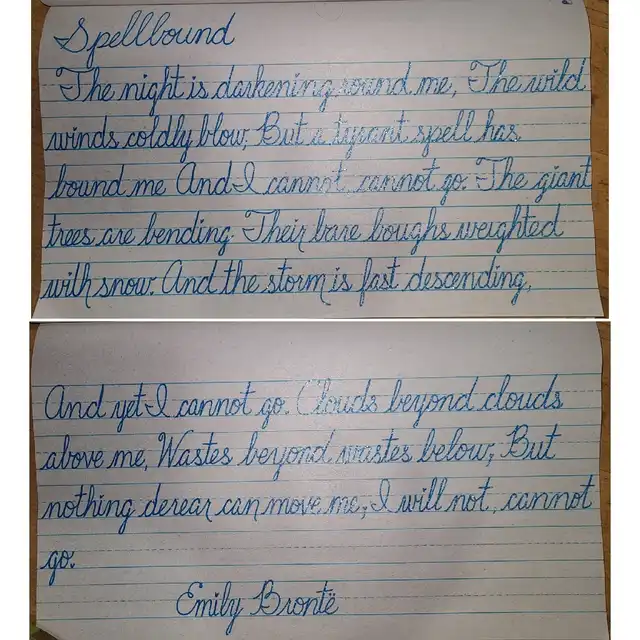 Spellbound
The night is darkening round me, The wild
winds coldly blow; But a tyrant spell has
bound me And I cannot, cannot go. The giant
trees are bending. Their bare boughs weighted
with snow. And the storm is fast descending,
And yet I cannot go. Clouds beyond clouds
above me, Wastes beyond wastes below; But
nothing derear can move me; I will not, cannot
go.
Emily Brontë